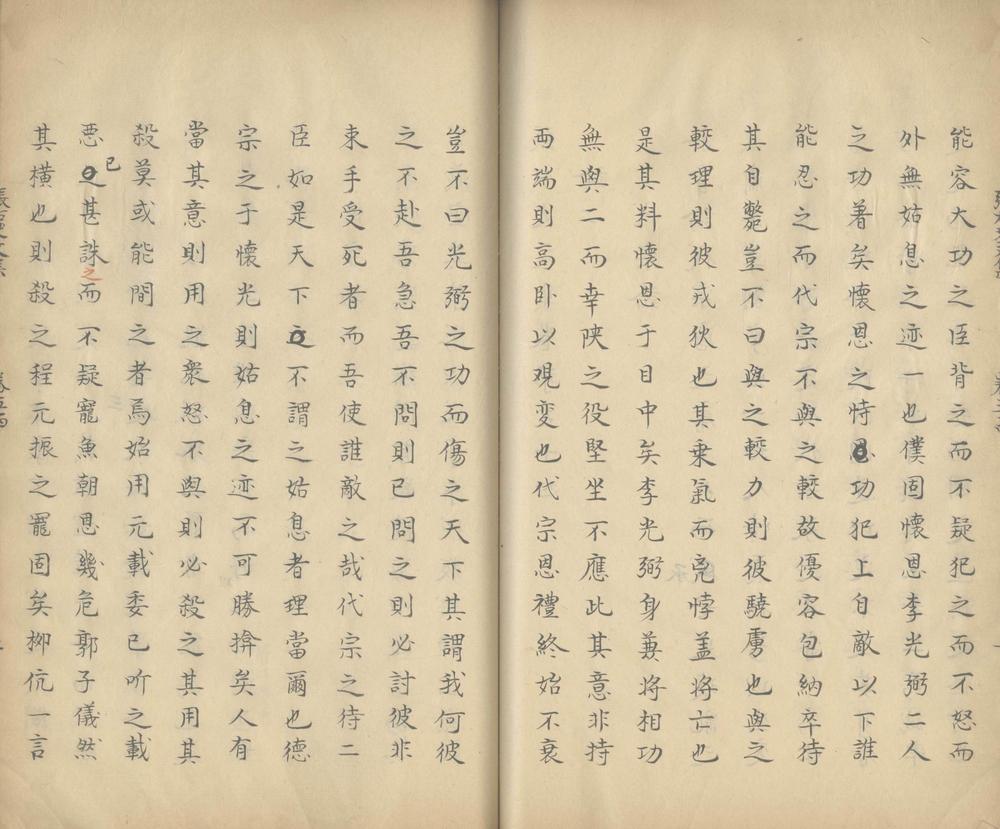 能容大功之臣背之而不疑犯之而不怒而
外無姑息之迹一也僕固懷恩李光弼二人
之功著矣懷恩之恃功犯上自敵以下誰
能忍之而代宗不與之較故優容包納卒待
其自斃豈不曰與之較力則彼驍虜也與之
較理則彼戎狄也其乗氣而凫悖盖將亡也
是其料懷恩于目中矣李光弼身兼將相功
無與二而幸陝之役堅坐不應此其意非持
兩端則高卧以观変也代宗恩禮終始不衰
豈不曰光弼之功而傷之天下其謂我何彼
之不赴吾急吾不問則已問之則必討彼非
束手受死者而吾使誰敵之哉代宗之待二
臣如是天下之不謂之姑息者理當爾也德
宗之于懷光則姑息之迹不可勝揜矣人有
當其意則用之衆怒不與則必殺之其用其
殺莫或能間之者焉始用元載委已听之載
惡已甚誅之而不疑寵魚朝恩幾危郭子儀然
其横也則殺之程元振之罷固矣柳伉一言